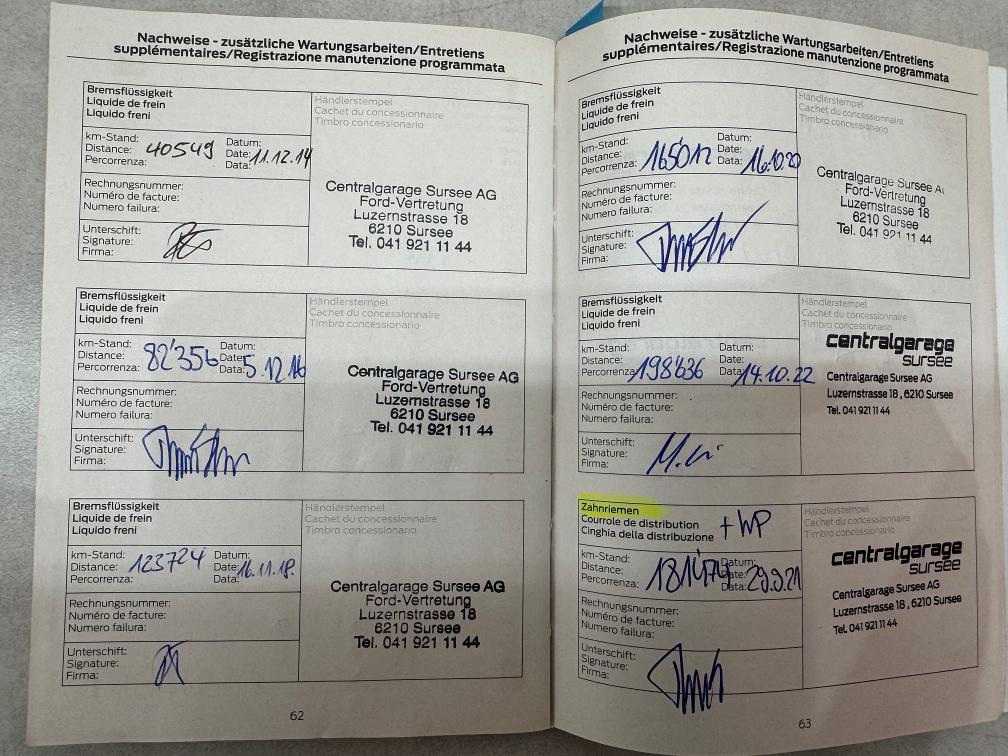 Nachweise - zusätzliche Wartungsarbeiten/Entretiens
supplémentaires/Registrazione manutenzione programmata
Bremsflüssigkeit
Liquide de frein
Liquido freni
Händlerstempel
Cachet du concessionnaire
Timbro concessionario
km-Stand:
Distance:
Percorrenza:
40549
Datum:
Date:
Data:
11.12.14
Rechnungsnummer:
Numéro de facture:
Numero failura:
Unterschift:
Signature:
Firma:
Centralgarage Sursee AG
Ford-Vertretung
Luzernstrasse 18
6210 Sursee
Tel. 041 921 11 44
Bremsflüssigkeit
Liquide de frein
Liquido freni
Händlerstempel
Cachet du concessionnaire
Timbro concessionario
km-Stand:
Distance:
Percorrenza:
82'356
Datum:
Date:
Data:
5.12.16
Rechnungsnummer:
Numéro de facture:
Numero failura:
Unterschift:
Signature:
Firma:
Centralgarage Sursee AG
Ford-Vertretung
Luzernstrasse 18
6210 Sursee
Tel. 041 921 11 44
Bremsflüssigkeit
Liquide de frein
Liquido freni
Händlerstempel
Cachet du concessionnaire
Timbro concessionario
km-Stand:
Distance:
Percorrenza:
123724
Datum:
Date:
Data:
16.11.18.
Rechnungsnummer:
Numéro de facture:
Numero failura:
Unterschift:
Signature:
Firma:
Centralgarage Sursee AG
Ford-Vertretung
Luzernstrasse 18
6210 Sursee
Tel. 041 921 11 44
62
Nachweise - zusätzliche Wartungsarbeiten/Entretiens
supplémentaires/Registrazione manutenzione programmata
Bremsflüssigkeit
Liquide de frein
Liquido freni
Händlerstempel
Cachet du concessionnaire
Timbro concessionario
km-Stand:
Distance:
Percorrenza:
165'012
Datum:
Date:
Data:
16.10.20
Rechnungsnummer:
Numéro de facture:
Numero failura:
Unterschift:
Signature:
Firma:
Centralgarage Sursee AG
Ford-Vertretung
Luzernstrasse 18
6210 Sursee
Tel. 041 921 11 44
Bremsflüssigkeit
Liquide de frein
Liquido freni
Händlerstempel
Cachet du concessionnaire
Timbro concessionario
km-Stand:
Distance:
Percorrenza:
198'636
Datum:
Date:
Data:
14.10.22
Rechnungsnummer:
Numéro de facture:
Numero failura:
Unterschift:
Signature:
Firma:
centralgarage
sursee
Centralgarage Sursee AG
Luzernstrasse 18 , 6210 Sursee
Tel. 041 921 11 44
Zahnriemen
Courrole de distribution
Cinghia della distribuzione
+ WP
Händlerstempel
Cachet du concessionnaire
Timbro concessionario
km-Stand:
Distance:
Percorrenza:
181'470
Datum:
Date:
Data:
29.9.21
Rechnungsnummer:
Numéro de facture:
Numero failura:
Unterschift:
Signature:
Firma:
centralgarage
sursee
Centralgarage Sursee AG
Luzernstrasse 18 , 6210 Sursee
Tel. 041 921 11 44
63